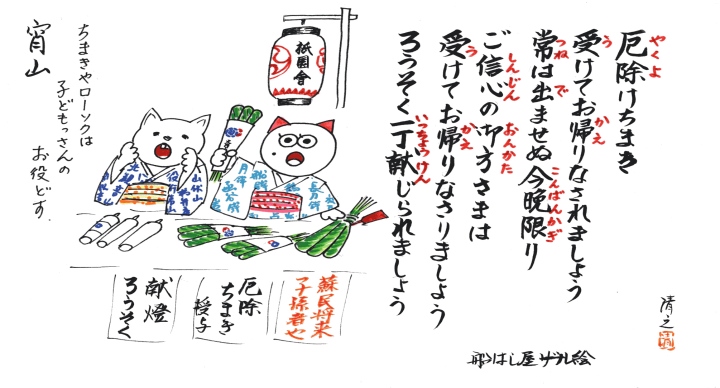 厄除けちまき
受けてお帰りなされましょう
常は出ませぬ今晩限り
ご信心の御方さまは
受けてお帰りなさりましょう
ろうそく一丁献じられましょう
やくよ
う
かえ
つね
で
こんばんかぎ
しんじん
おんかた
う
かえ
いっちょうけん
清之
船はし屋ザル絵
祇園會
宵山
ちまきやローソクは
子どもっさんの
お役どす.
蘇民将来
子孫者也
厄除
ちまき
授与
献燈
ろうそく